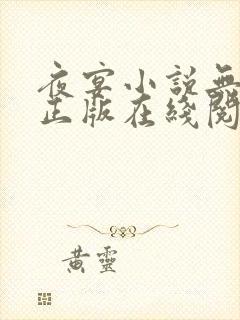 夜宴小説無
正版在綫閱
黃靈